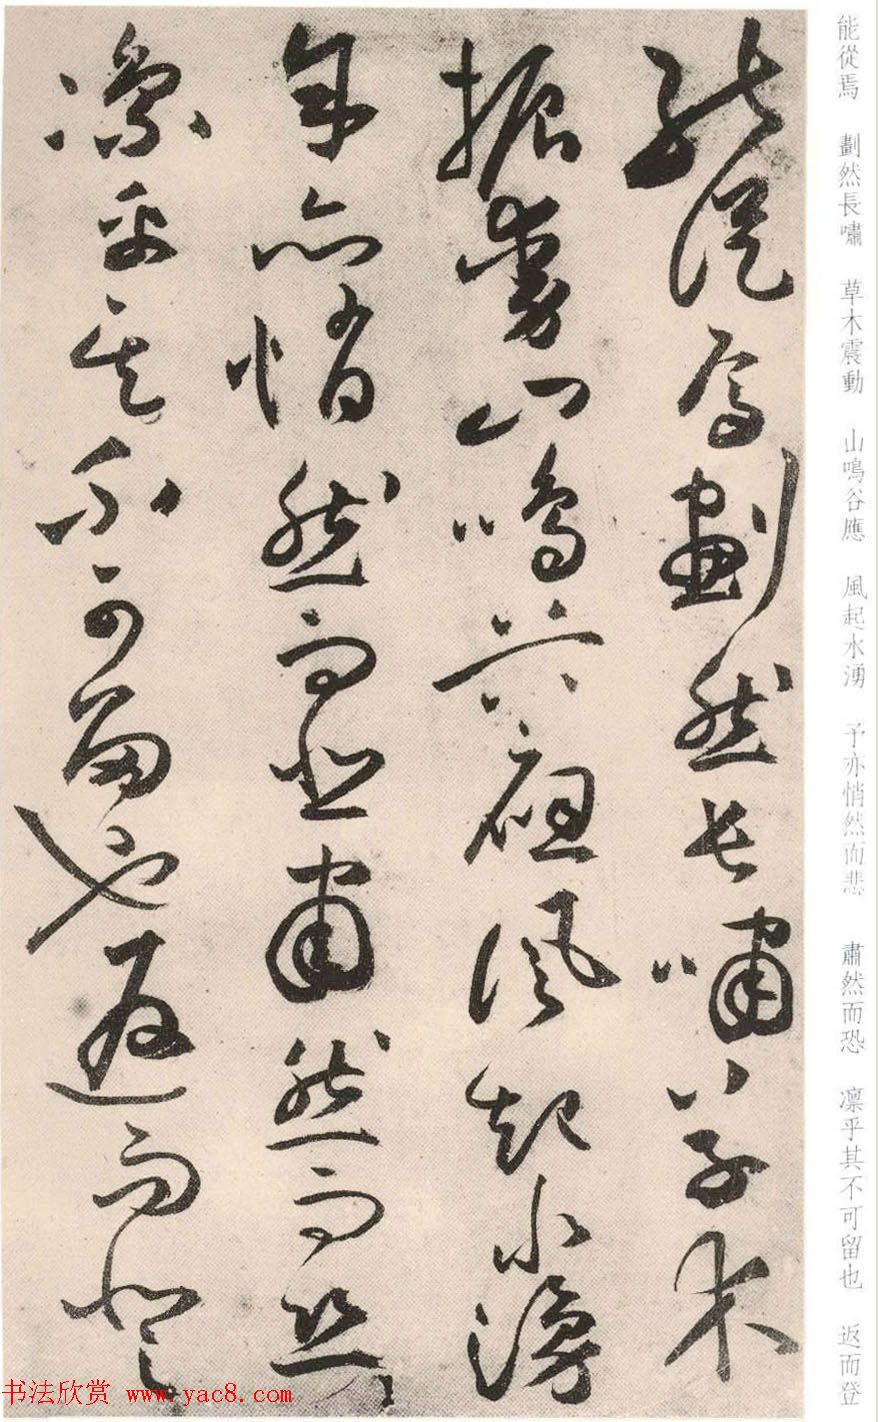 能從焉 劃然長嘯 草木震動 山鳴谷應 風起水湧 予亦悄然而悲 肅然而恐 凜乎其不可留也 返而登
能從焉劃然長嘯草木
振動山鳴谷應風起水湧
予亦悄然而悲肅然而恐
凜乎其不可留也返而登
书法欣赏 www.yac8.com